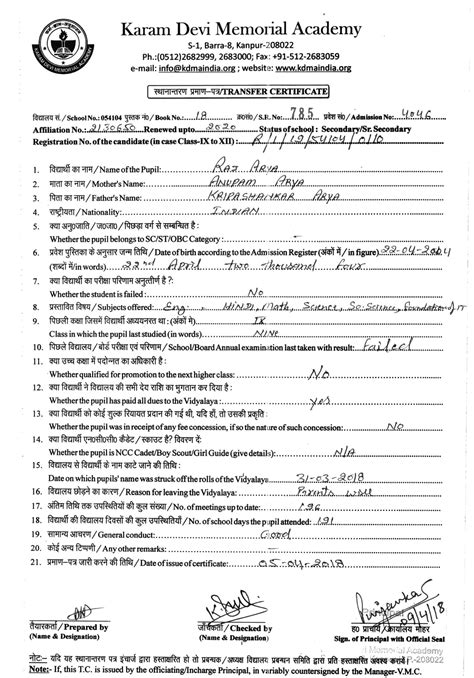 Karam Devi Memorial Academy
S-1, Barra-8, Kanpur-208022
Ph.:(0512)2682999, 2683000; Fax: +91-512-2683059
e-mail: info@kdmaindia.org ; website: www.kdmaindia.org
स्थानान्तरण प्रमाण-पत्र/TRANSFER CERTIFICATE
विद्यालय सं./School No.: 054104 पुस्तक नं०/Book No.: 18 क्र०सं०/S.R. No.: 785 प्रवेश सं०/Admission No.: 4046
Affiliation No.: 2130650 Renewed upto 2020 Status of school : Secondary/Sr. Secondary
Registration No. of the candidate (in case Class-IX to XII) : R/1/19/54104/0110
1. विद्यार्थी का नाम / Name of the Pupil: RAJ ARYA
2. माता का नाम / Mother's Name: ANUPAM ARYA
3. पिता का नाम / Father's Name: KRIPASHANKAR ARYA
4. राष्ट्रीयता / Nationality: INDIAN
5. क्या अनु०जाति / ज०जा० / पिछड़ा वर्ग से सम्बन्धित है :
Whether the pupil belongs to SC/ST/OBC Category : –
6. प्रवेश पुस्तिका के अनुसार जन्म तिथि / Date of birth according to the Admission Register (अंकों में / in figure) 22-04-2004
(शब्दों में/in words) 22nd April two thousand Four
7. क्या विद्यार्थी का परीक्षा परिणाम अनुत्तीर्ण है ?:
Whether the student is failed: No
8. प्रस्तावित विषय / Subjects offered: Eng., HINDI, Math, Science, So. Science, Foundation of IT
9. पिछली कक्षा जिसमें विद्यार्थी अध्ययनरत था : (अंकों में) IX
Class in which the pupil last studied (in words) NINE
10. पिछले विद्यालय / बोर्ड परीक्षा एवं परिणाम / School/Board Annual examination last taken with result: Failed
11. क्या उच्च कक्षा में पदोन्नत का अधिकारी है :
Whether qualified for promotion to the next higher class: No
12. क्या विद्यार्थी ने विद्यालय की सभी देय राशि का भुगतान कर दिया है :
Whether the pupil has paid all dues to the Vidyalaya : yes
13. क्या विद्यार्थी को कोई शुल्क रियायत प्रदान की गई थी, यदि हाँ, तो उसकी प्रकृति :
Whether the pupil was in receipt of any fee concession, if so the nature of such concession: NO
14. क्या विद्यार्थी एन०सी०सी० कैडेट / स्काउट है? विवरण दें:
Whether the pupil is NCC Cadet/Boy Scout/Girl Guide (give details): N/A
15. विद्यालय से विद्यार्थी के नाम काटे जाने की तिथि :
Date on which pupils' name was struck off the rolls of the Vidyalaya 31-03-2018
16. विद्यालय छोड़ने का कारण / Reason for leaving the Vidyalaya: Parents wish
17. अंतिम तिथि तक उपस्थितियों की कुल संख्या / No. of meetings up to date: 196
18. विद्यार्थी की विद्यालय दिवसों की कुल उपस्थितियाँ / No. of school days the pupil attended: 191
19. सामान्य आचरण / General conduct: Good
20. कोई अन्य टिप्पणी / Any other remarks: –
21. प्रमाण-पत्र जारी करने की तिथि / Date of issue of certificate: 05-04-2018
09/4/18
तैयारकर्ता / Prepared by
(Name & Designation)
जाँचकर्ता / Checked by
(Name & Designation)
ह० प्राचार्य / कार्यालय मोहर
Sign. of Principal with Official Seal
Memorial Academy
-208022
नोट:- यदि यह स्थानान्तरण पत्र इंचार्ज द्वारा हस्ताक्षरित हो तो प्रबन्धक / अध्यक्ष विद्यालय प्रबन्धन समिति द्वारा प्रति हस्ताक्षरित अवश्य करायें।
Note:- If, this T.C. is issued by the officiating/Incharge Principal, in variably countersigned by the Manager-V.M.C.